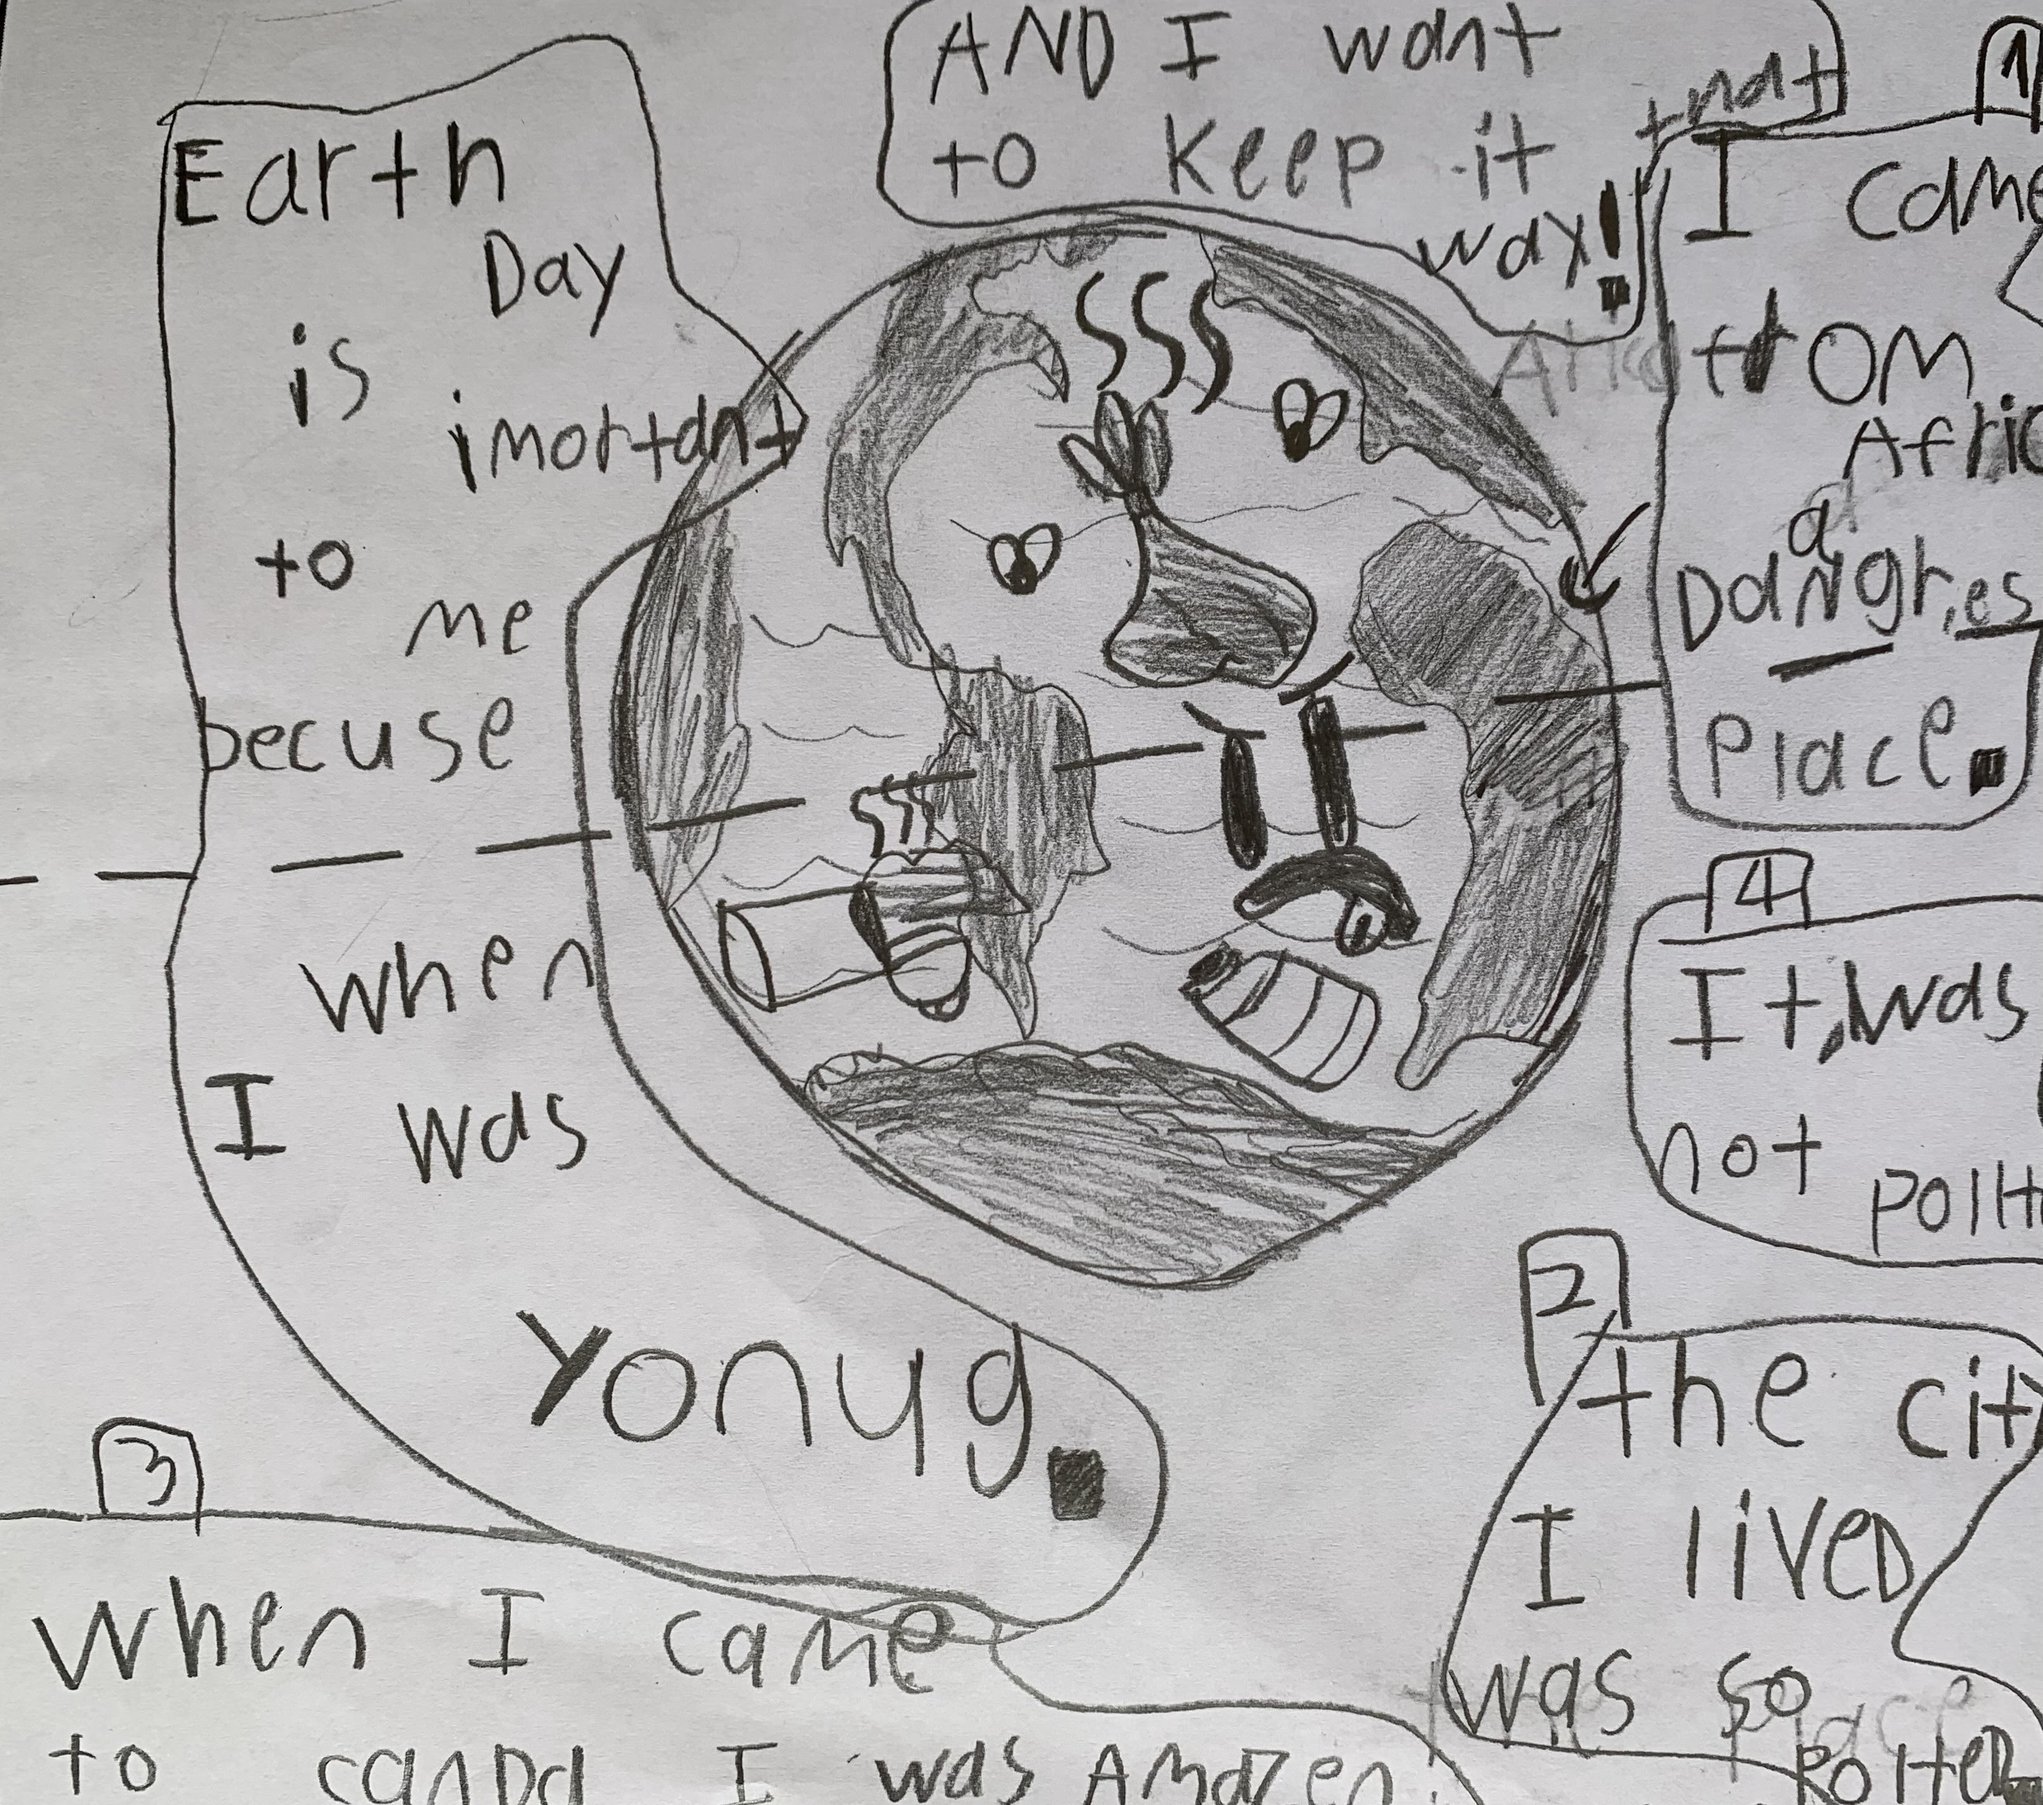 Earth
Day
is
imortant
to
me
becuse
when
I was
yonug.
1
I came
from
Afric
a
Dangr,es
Place.
2
the city
I lived
was so
PolteD
3
when I came
to canDa I was AmaZen
4
It was
not
Polt
AND I want
to Keep it
that
way!